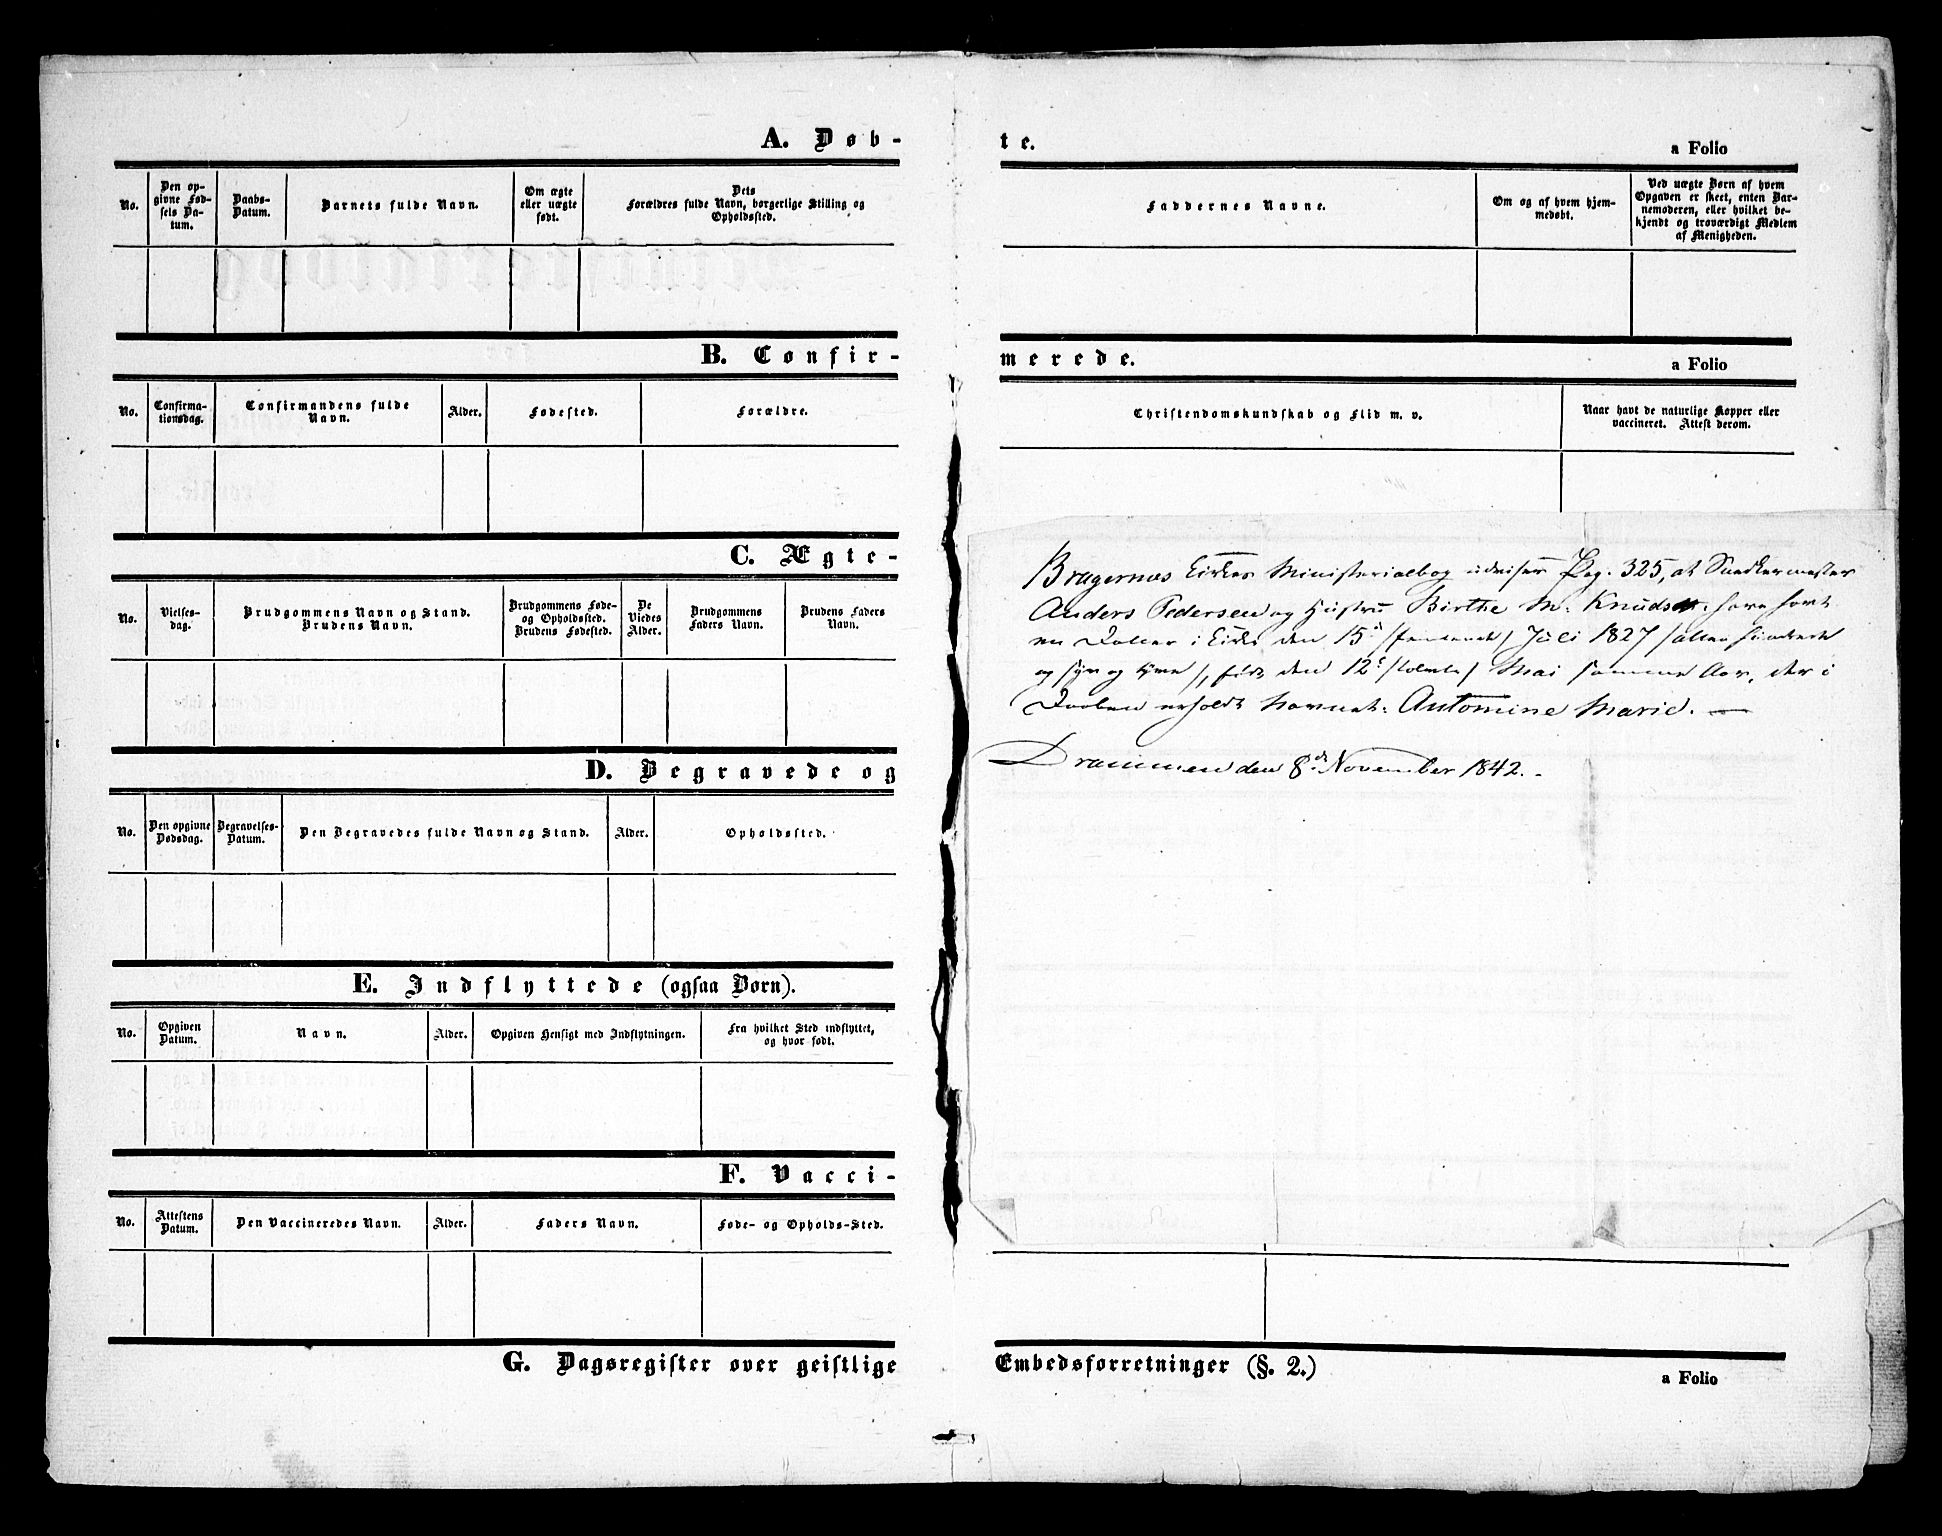 A. Døb-
te.
a Folio
No.
Den op-
givne Fød-
sels Da-
tum.
Daabs-
Datum.
Barnets fulde Navn.
Om ægte
eller uægte
født.
Dets
Forældres fulde Navn, borgerlige Stilling og
Opholdssted.
Faddernes Navne.
Om og af hvem hjem-
medøbt.
Ved uægte Børn af hvem
Opgaven er skeet, enten Bar-
nemoderen, eller hvilket be-
kjendt og troværdigt Medlem
af Menigheden.
B. Confir-
merede.
a Folio
No.
Confirma-
tionsdag.
Confirmandens fulde
Navn.
Alder.
Fødested.
Forældre.
Christendomskundskab og Flid m. v.
Naar havt de naturlige Kopper eller
vaccineret. Attest derom.
C. Ægte-
No.
Vielses-
dag.
Brudgommens Navn og Stand.
Brudens Navn.
Brudgommens Føde-
og Opholdssted.
Brudens Fødested.
De
Viedes
Alder.
Brudgommens
Faders Navn.
Brudens Faders
Navn.
Bragernæs Kirkes Ministerialbog udviser Pag. 325, at Snedkermester
Anders Pedersen og Hustru Birthe M. Knudsd. have havt
en Datter i Kirke den 15de /femtende/ Juli 1827 /atten hundrede
og syv og tyve/, født den 12te /tolvte/ Mai samme Aar, der i
Daaben erholdt Navnet: Antomine Marie. —
Drammen den 8de November 1842. -
D. Begravede og
No.
Den opgivne
Dødsdag.
Begravelses-
Datum.
Den Begravedes fulde Navn og Stand.
Alder.
Opholdssted.
E. Indflyttede (ogsaa Børn).
No.
Opgiven
Datum.
Navn.
Alder.
Opgiven Hensigt med Indflytningen.
Fra hvilket Sted indflyttet,
og hvor født.
F. Vacci-
No.
Attestens
Datum.
Den Vaccineredes Navn.
Alder.
Faders Navn.
Føde- og Opholds-Sted.
G. Dagsregister over geistlige
Embedsforretninger (§. 2.)
a Folio